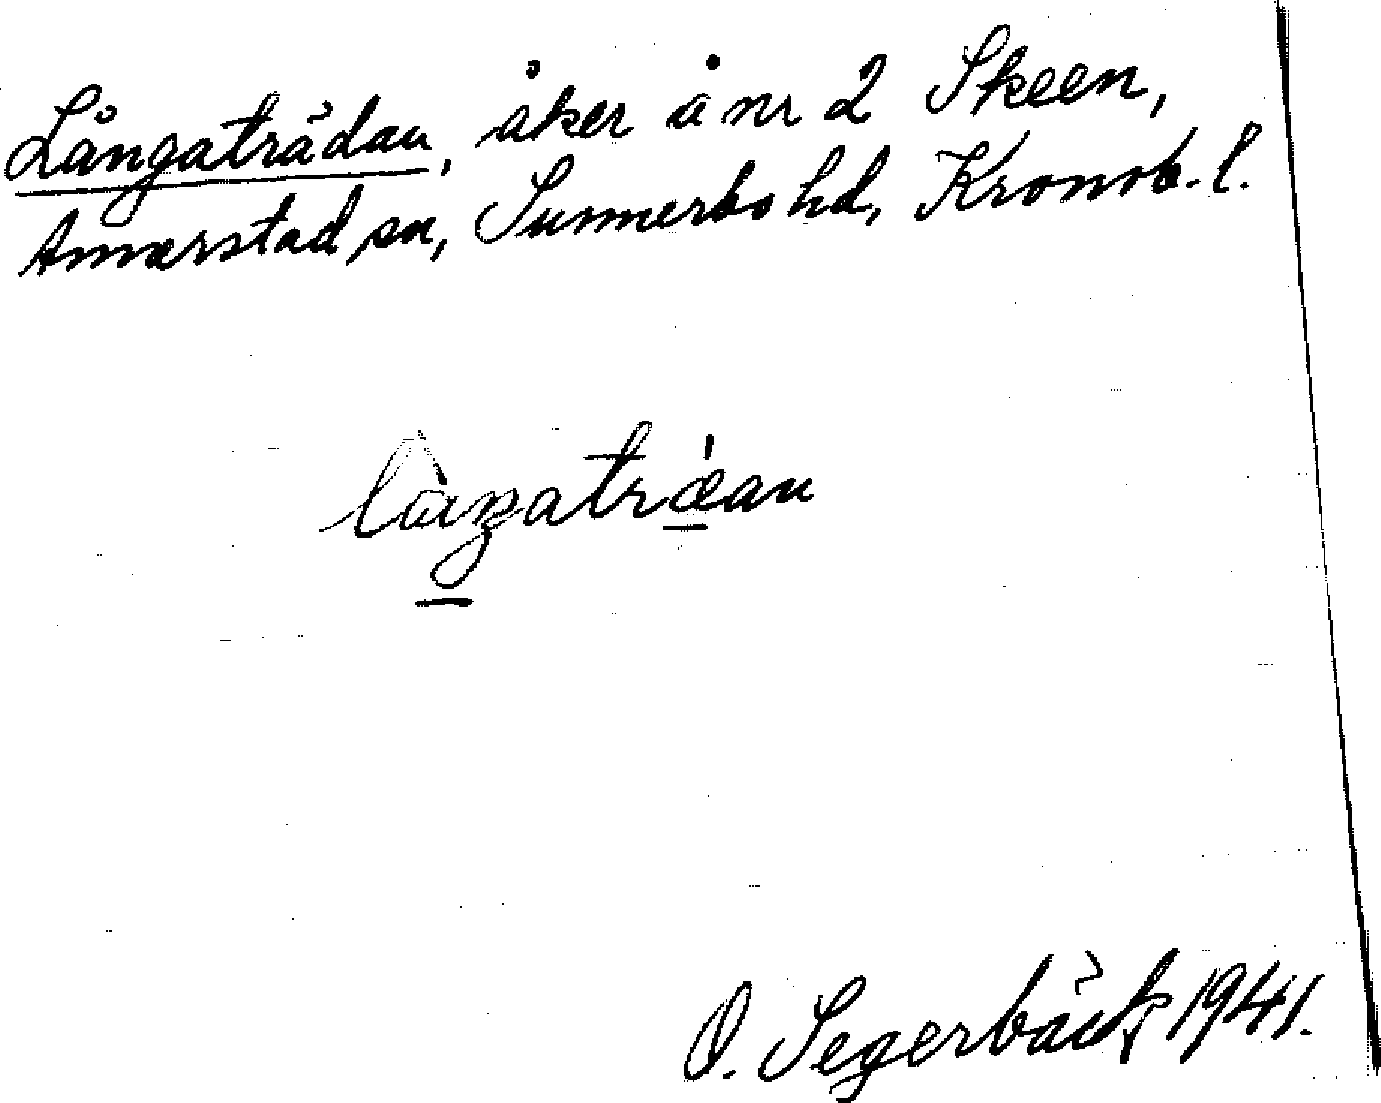 Långaträdan, åker å nr 2 Skeen,
Annerstad sn, Sunnerbo hd, Kronob. l.
O. Segerbäck 1941.